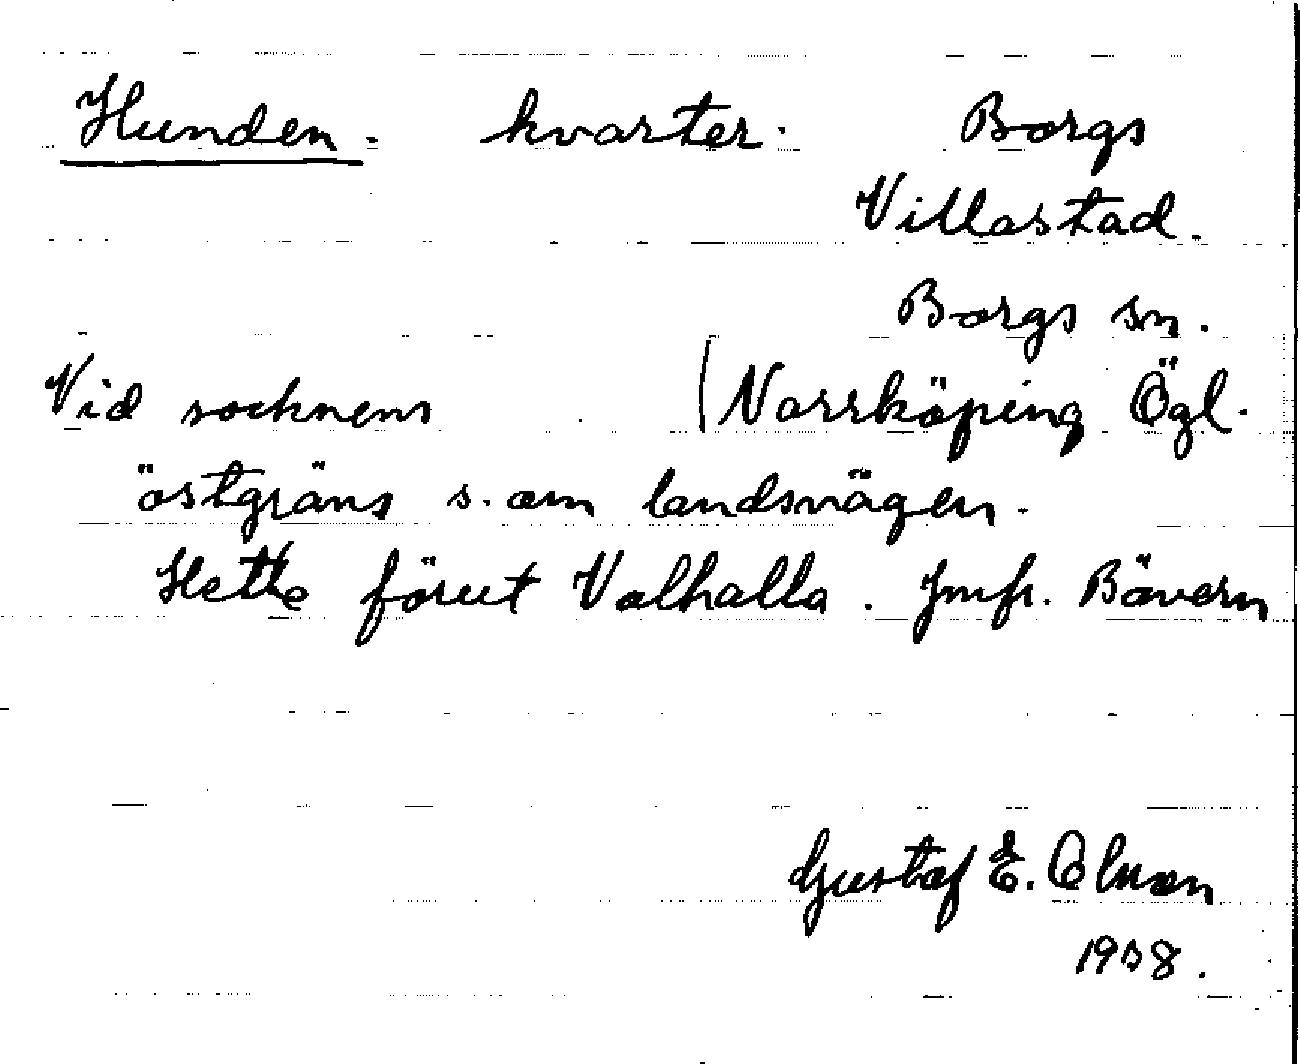 Hunden. kvarter. Borgs
Villastad.
Borgs sn.
Vid socknens (Norrköping Ögl.
östgräns s. om landsvägen.
Hette förut Valhalla. Jmfr. Bävern
Gustaf E. Olsson
1938.